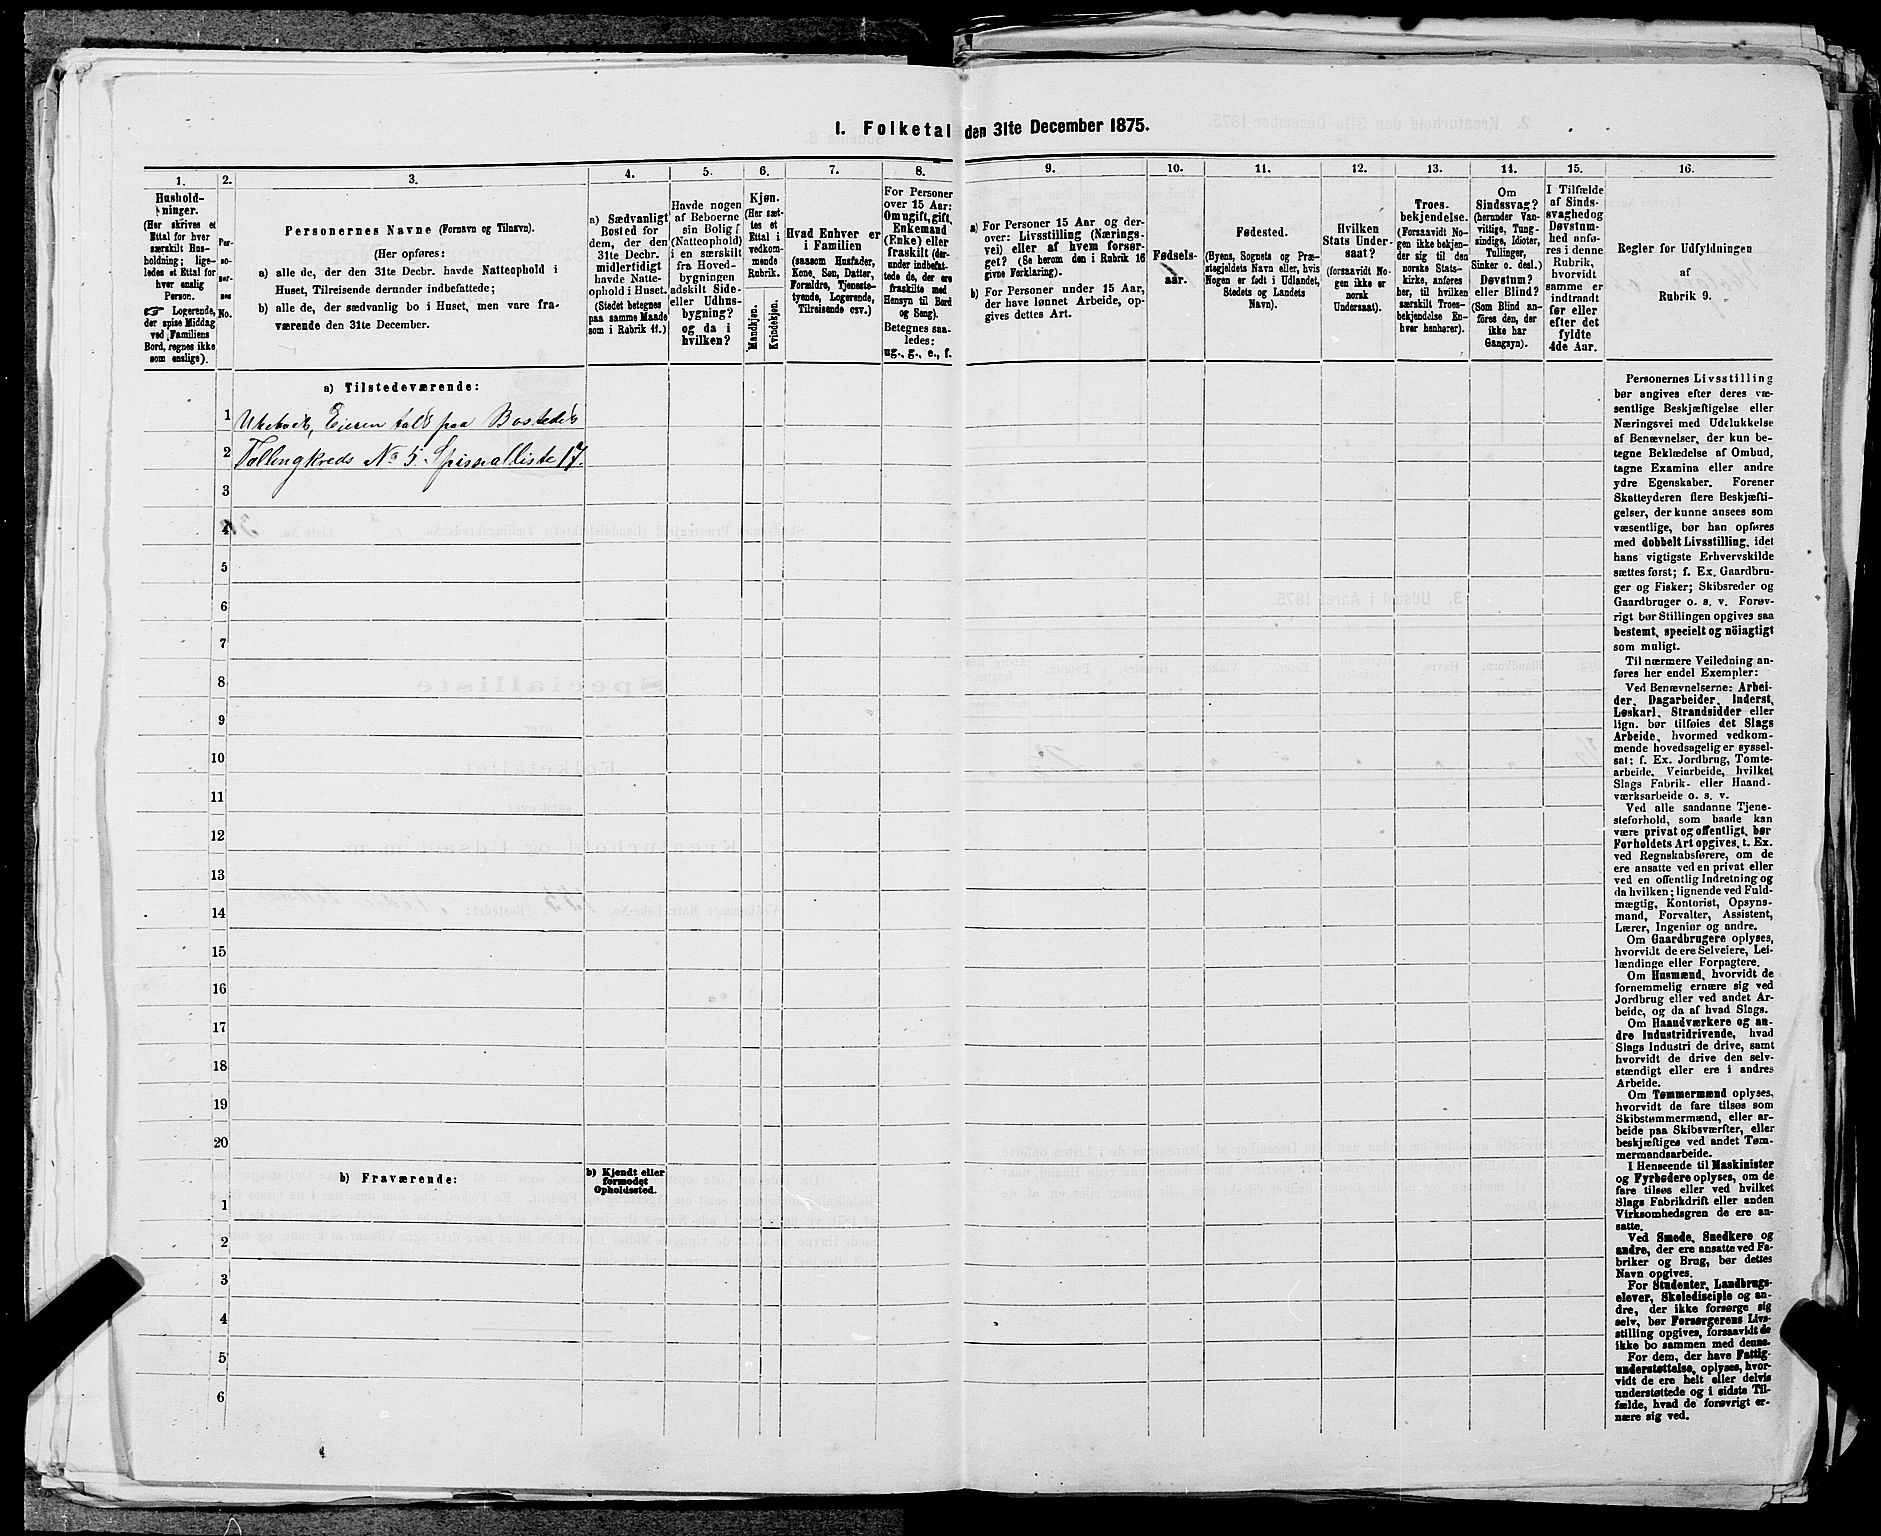 1. Folketal den 31te December 1875.
1.
2.
3.
4.
5.
6.
7.
8.
9.
10.
11.
12.
13.
14.
15.
16.
Hushold-
ninger.
(Her skrives et
Ettal for hver
særskilt Hus-
holdning; lige-
ledes et Ettal for
hver enslig
Person.
☞ Logerende,
der spise Middag
ved Familiens
Bord, regnes ikke
som enslige).
Per-
so-
ner-
nes
No.
Personernes Navne (Fornavn og Tilnavn).
(Her opføres:
a) alle de, der den 31te Decbr. havde Natteophold i
Huset, Tilreisende derunder indbefattede;
b) alle de, der sædvanlig bo i Huset, men vare fra-
værende den 31te December.
a) Sædvanligt
Bosted for
dem, der den
31te Decbr.
midlertidigt
havde Natte-
ophold i Huset.
(Stedet betegnes
paa samme Maade
som i Rubrik 11.)
Havde nogen
af Beboerne
sin Bolig
(Natteophold)
i en særskilt
fra Hoved-
bygningen
adskilt Side-
eller Udhus-
bygning?
og da i
hvilken?
Kjøn.
(Her sæt-
tes et
Ettal i
vedkom-
mende
Rubrik.
Mandkjøn.
Kvindekjøn.
Hvad Enhver er
i Familien
(saasom Husfader,
Kone, Søn, Datter,
Forældre, Tjeneste-
tyende, Logerende,
Tilreisende osv.)
For Personer
over 15 Aar:
Om ugift, gift,
Enkemand
(Enke) eller
fraskilt (der-
under indbefat-
tede de, der ere
fraskilte med
Hensyn til Bord
og Seng).
Betegnes saa-
ledes:
ug., g., e., f.
a) For Personer 15 Aar og der-
over: Livsstilling (Nærings-
vei) eller af hvem forsør-
get? (Se herom den i Rubrik 16
givne Forklaring).
b) For Personer under 15 Aar,
der have lønnet Arbeide, op-
gives dettes Art.
Fødsels-
aar.
Fødested.
(Byens, Sognets og Præ-
stegjeldets Navn eller, hvis
Nogen er født i Udlandet,
Stedets og Landets
Navn).
Hvilken
Stats Under-
saat?
(forsaavidt No-
gen ikke er
norsk
Undersaat).
Troes-
bekjendelse.
(Forsaavidt No-
gen ikke bekjen-
der sig til den
norske Stats-
kirke, anføres
her, til hvilken
særskilt Troes-
bekjendelse En-
hver henhører).
Om
Sindssvag?
(herunder Van-
vittige, Tung-
sindige, Idioter,
Tullinger,
Sinker o. desl.)
Døvstum?
eller Blind?
(Som Blind an-
føres den, der
ikke har
Gangsyn).
I Tilfælde
af Sinds-
svaghed og
Døvstum-
hed anfø-
res i denne
Rubrik,
hvorvidt
samme er
indtraadt
før eller
efter det
fyldte
4de Aar.
Regler for Udfyldningen
af
Rubrik 9.
a) Tilstedeværende:
1 Ubeboet, Eieren talt paa Bostedet
2 Tællingkreds No 5. Spicialliste 17.
3
4
5
6
7
8
9
10
11
12
13
14
15
16
17
18
19
20
b) Fraværende:
b) Kjendt eller
formodet
Opholdssted.
1
2
3
4
5
6
Personernes Livsstilling
bør angives efter deres væ-
sentlige Beskjæftigelse eller
Næringsvei med Udelukkelse
af Benævnelser, der kun be-
tegne Beklædelse af Ombud,
tagne Examina eller andre
ydre Egenskaber. Forener
Skatteyderen flere Beskjæfti-
gelser, der kunne ansees som
væsentlige, bør han opføres
med dobbelt Livsstilling, idet
hans vigtigste Erhvervskilde
sættes først; f. Ex. Gaardbru-
ger og Fisker; Skibsreder og
Gaardbruger o. s. v. Forøv-
rigt bør Stillingen opgives saa
bestemt, specielt og nöiagtigt
som muligt.
Til nærmere Veiledning an-
føres her endel Exempler:
Ved Benævnelserne: Arbei-
der, Dagarbeider, Inderst,
Løskarl, Strandsidder eller
lign. bør tilføies det Slags
Arbeide, hvormed vedkom-
mende hovedsagelig er syssel-
sat; f. Ex. Jordbrug, Tomte-
arbeide, Veiarbeide, hvilket
Slags Fabrik- eller Haand-
værksarbeide o. s. v.
Ved alle saadanne Tjene-
steforhold, som baade kan
være privat og offentligt, bør
Forholdets Art opgives, t. Ex.
ved Regnskabsførere, om de
ere ansatte ved en privat eller
ved en offentlig Indretning og
da hvilken; lignende ved Fuld-
mægtig, Kontorist, Opsyns-
mand, Forvalter, Assistent,
Lærer, Ingeniør og andre.
Om Gaardbrugere oplyses,
hvorvidt de ere Selveiere, Lei-
lændinge eller Forpagtere.
Om Husmænd, hvorvidt de
fornemmelig ernære sig ved
Jordbrug eller ved andet Ar-
beide, og da af hvad Slags.
Om Haandværkere og an-
dre Industridrivende, hvad
Slags Industri de drive, samt
hvorvidt de drive den selv-
stændigt eller ere i andres
Arbeide.
Om Tømmermænd oplyses,
hvorvidt de fare tilsøs som
Skibstømmermænd, eller ar-
beide paa Skibsværfter, eller
beskjæftiges ved andet Tøm-
mermandsarbeide.
I Henseende til Maskinister
og Fyrbødere oplyses, om de
fare tilsøs eller ved hvilket
Slags Fabrikdrift eller anden
Virksomhedsgren de ere an-
satte.
Ved Smede, Snedkere og
andre, der ere ansatte ved Fa-
briker og Brug, bør dettes
Navn opgives.
For Studenter, Landbrugs-
elever, Skoledisciple og an-
dre, der ikke forsørge sig
selv, bør Forsørgerens Livs-
stilling opgives, forsaavidt de
ikke bo sammen med denne.
For dem, der have Fattig-
understøttelse, oplyses, hvor-
vidt de ere helt eller delvis
understøttede og i sidste Til-
fælde, hvad de forøvrigt er-
nære sig ved.